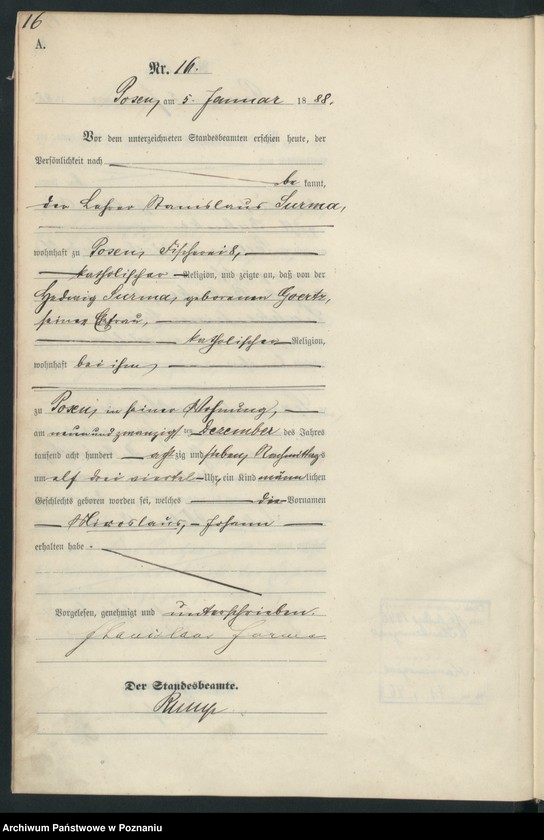 16
A.
Nr. 16.
Posen, am 5. Januar 1888.
Vor dem unterzeichneten Standesbeamten erschien heute, der
Persönlichkeit nach
be kannt,
der Lehrer Stanislaus Surma,
wohnhaft zu Posen, Fischerei 8,
katholischer Religion, und zeigte an, daß von der
Hedwig Surma, geborenen Goertz,
seiner Efrau,
katholischer Religion,
wohnhaft bei ihm,
zu Posen, in seiner Wohnung,
am neunundzwanzigsten Dezember des Jahres
tausend acht hundert achtzig und sieben, Nachmittags
um elf drei viertel Uhr, ein Kind männlichen
Geschlechts geboren worden sei, welches die Vornamen
Miroslaus, Johann
erhalten habe.
Vorgelesen, genehmigt und unterschrieben.
Stanislaus Surma
Der Standesbeamte.
Archiwum Państwowe w Poznaniu